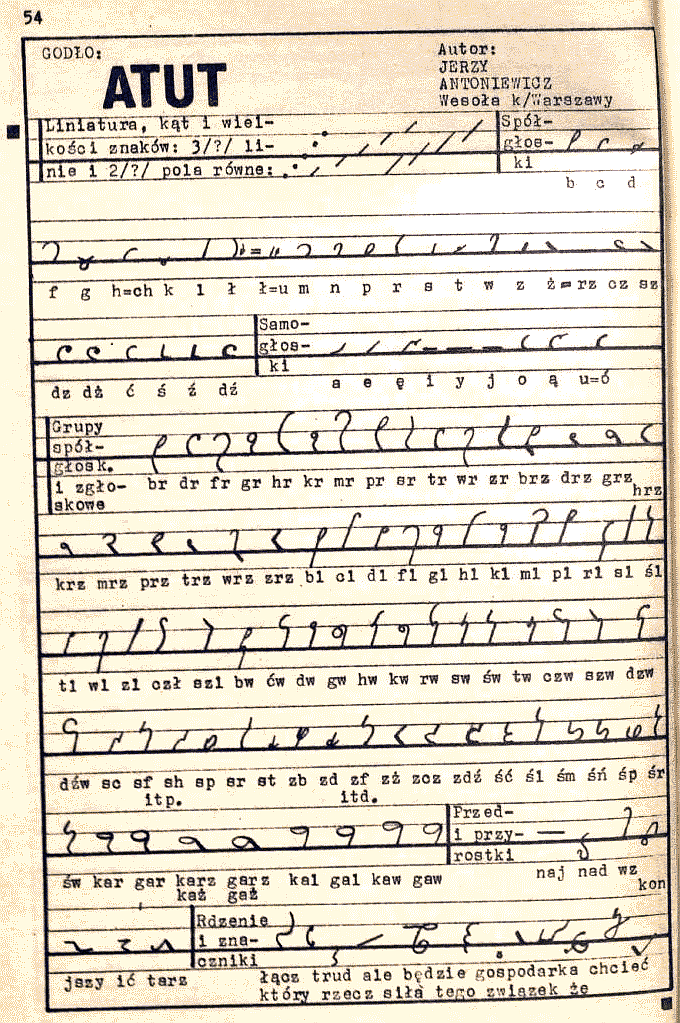 54
GODŁO:
ATUT
Autor:
JERZY
ANTONIEWICZ
Wesoła k/Warszawy
Liniatura, kąt i wiel-
kości znaków: 3/?/ li-
nie i 2/?/ pola równe:
Spół-
głos-
ki
b c d
f g h=ch k l ł ł=u m n p r s t w z ż=rz cz sz
Samo-
głos-
ki
dz dż ć ś ź dź
a e ę i y j o ą u=ó
Grupy
spół-
głosk.
i zgło-
skowe
br dr fr gr hr kr mr pr sr tr wr zr brz drz grz
hrz
krz mrz prz trz wrz zrz bl cl dl fl gl hl kl ml pl rl sl śl
tl wl zl czł szl bw ćw dw gw hw kw rw sw św tw czw szw dzw
dźw sc sf sh sp sr st zb zd zf zż zcz zdź ść śl śm śń śp śr
itp. itd.
św kar gar karz garz kal gal kaw gaw
każ gaż
Przed-
i przy-
rostki
naj nad wz
kon
Rdzenie
i zna-
czniki
jszy ić tarz
łącz trud ale będzie gospodarka chcieć
który rzecz siła tego związek że